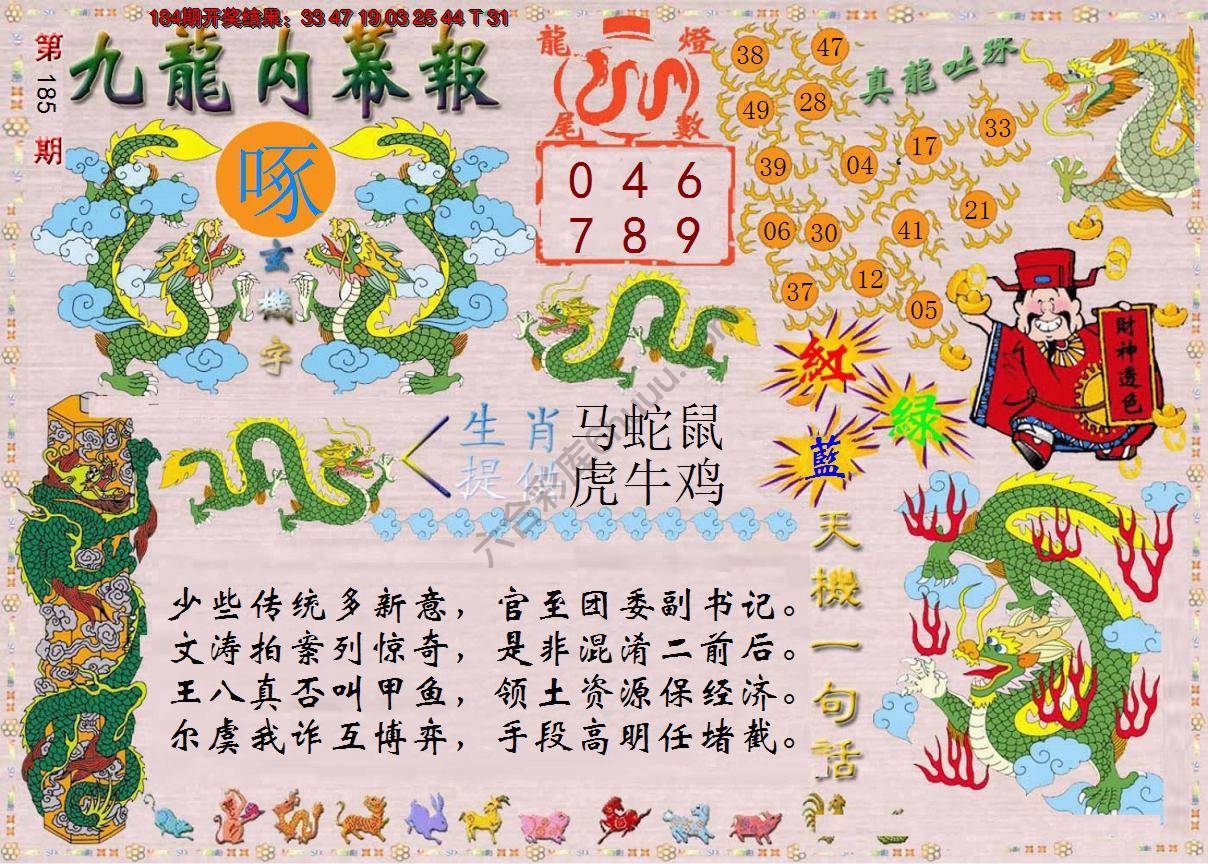 184期开奖结果：33 47 19 03 25 44 T 31
第185期
九龍内幕報
啄
玄機字
龍燈
尾數
0 4 6
7 8 9
真龍吐珠
38 47
49 28
39 04 17 33
06 30 41 21
37 12 05
財神透色
紅
綠
藍
生肖
提供
马蛇鼠
虎牛鸡
天機一句話
少些传统多新意，官至团委副书记。
文涛拍案列惊奇，是非混淆二前后。
王八真否叫甲鱼，领土资源保经济。
尔虞我诈互博弈，手段高明任堵截。